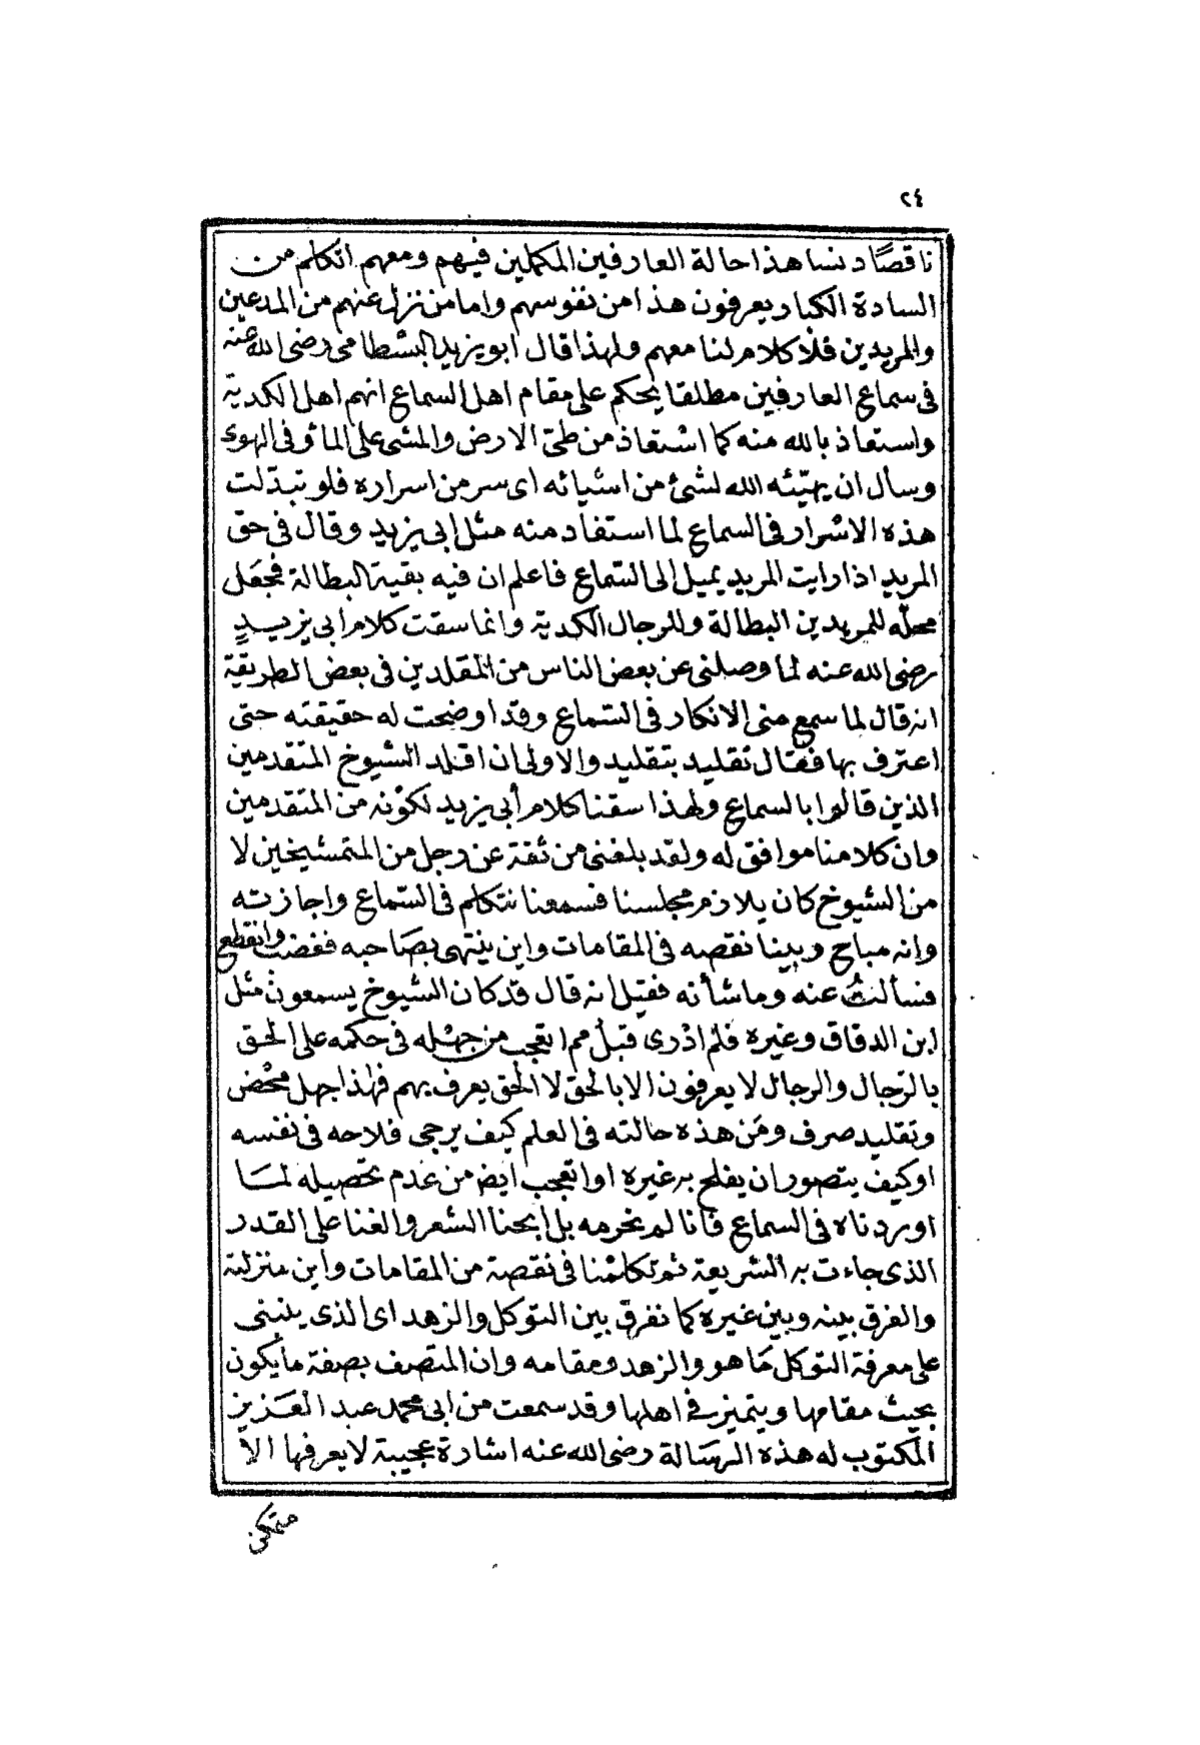 ٢٤
ناقصًا دنسا هذا حالة العارفين المكملين فيهم ومعهم اتكلم من
السادة الكبار يعرفون هذا من نفوسهم واما من نزل عنهم من المدعين
والمريدين فلا كلام لنا معهم ولهذا قال ابو يزيد البسطامى رضى الله عنه
فى سماع العارفين مطلقا يحكم على مقام اهل السماع انهم اهل الكدية
واستعاذ بالله منه كما استعاذ من طىّ الارض والمشى على الماء وفى الهوى
وسأل ان يهيّئه الله لشئ من اشيائه اى سر من اسراره فلو تبدّلت
هذه الاسرار فى السماع لما استفاد منه مثل ابى يزيد وقال فى حق
المريد اذا رايت المريد يميل الى السّماع فاعلم ان فيه بقية البطالة فجعل
محلّه للمريدين البطالة وللرجال الكدية وانما سقت كلام ابى يزيدٍ
رضى الله عنه لما وصلنى عن بعض الناس من المقلدين فى بعض الطريقة
انه قال لما سمع منى الانكار فى السّماع وقد اوضحت له حقيقته حتى
اعترف بها فقال تقليد بتقليد والاولى ان اقلد الشيوخ المتقدمين
الذين قالوا بالسماع ولهذا سقنا كلام أبى يزيد لكوْنه من المتقدمين
وان كلامنا موافق له ولقد بلغنى من ثقة عن رجل من المتمشيخين لا
من الشيوخ كان يلازم مجلسنا فسمعنا نتكلم فى السّماع واجازته
وانه مباح وبينا نقصه فى المقامات واين ينتهى بصَاحبه فغضب وانقطع
فسألتُ عنه وما شأنه فقيل انه قال قد كان الشيوخ يسمعون مثل
ابن الدقاق وغيره فلم ادْرى قبل مم اتعجب من جهْله فى حكمه على الحق
بالرّجال والرجال لا يعرفون الا بالحق لا الحق يعرف بهم فهٰذا جهل محْض
وتقليد صرف ومَن هذه حالته فى العلم كيف يرجى فلاحه فى نفسه
او كيف يتصور ان يفلح به غيره او اتعجب ايضا من عدم تحصيله لما
اوردناه فى السماع فانا لم نحرمه بل ابحنا الشعر والغنا على القدر
الذى جاءت به الشريعة ثم تكلمْنا فى نقصه من المقامات واين منزلته
والفرق بينه وبين غيره كما نفرق بين التوكل والزهد اى الذى ينبنى
على معرفة التوكل مَا هو والزهد ومقامه وان المتصف بصفة ما يكون
بحيث مقامها ويتميز فى اهلها وقد سمعت من ابى محمد عبد العَزيز
المكتوب له هذه الرسَالة رضى الله عنه اشارة عجيبة لا يعرفها الاّ
متمكن